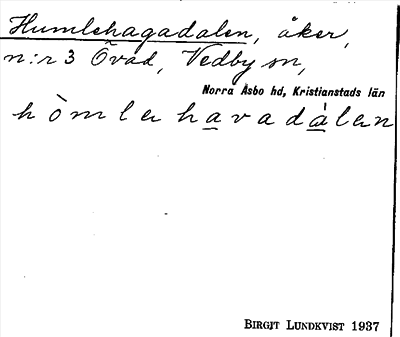 Humlehagadalen, åker,
n:r 3 Övad, Vedby sn,
Norra Åsbo hd, Kristianstads län
hòmlehavadàlen
BIRGIT LUNDKVIST 1937